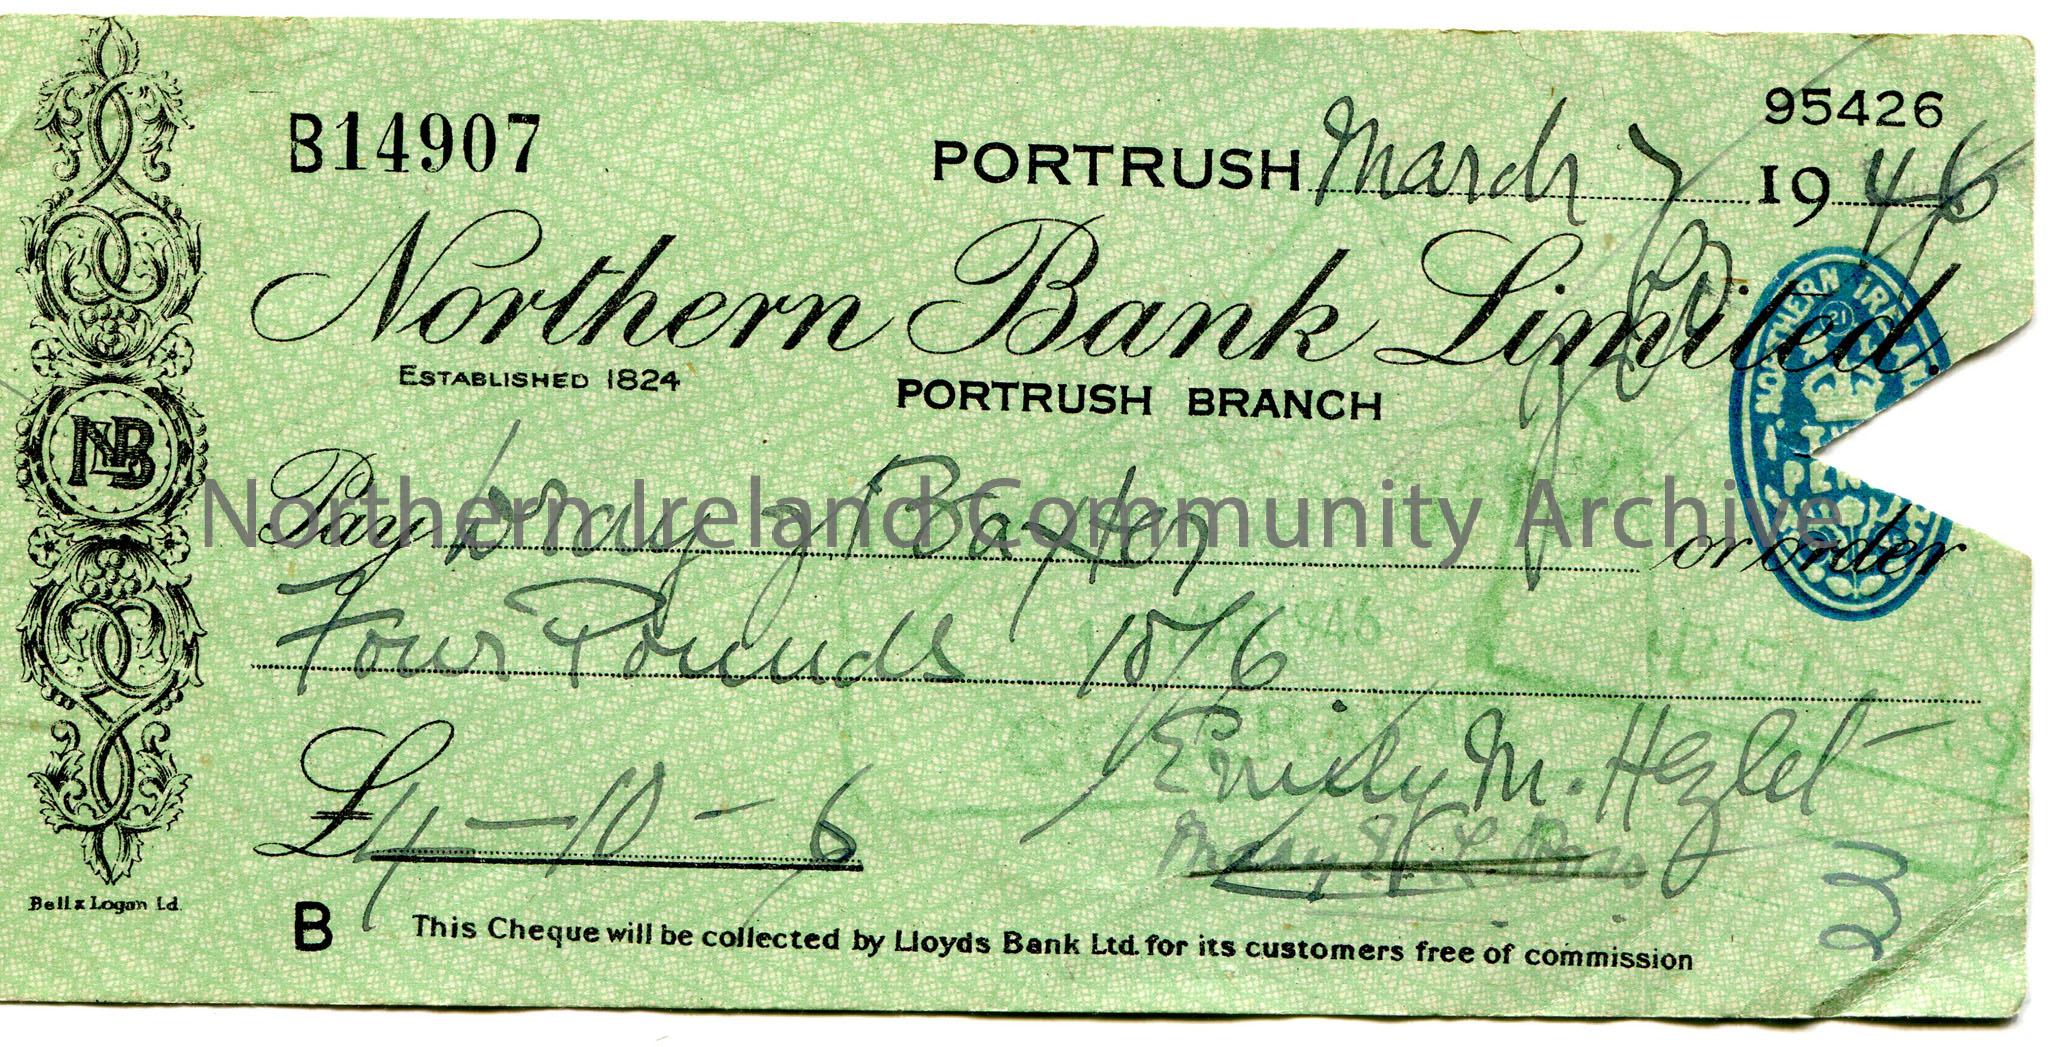 95426
B14907
PORTRUSH March 7 1946
Northern Bank Limited.
ESTABLISHED 1824
PORTRUSH BRANCH
NORTHERN IRELAND
21
NLB
Pay Wray & Baxter or order
Northern Ireland Community Archive
Four Pounds 10/6
1946
£4-10-6
Emily M. Hezlet
Mary
Bell & Logan Ld.
B This Cheque will be collected by Lloyds Bank Ltd. for its customers free of commission